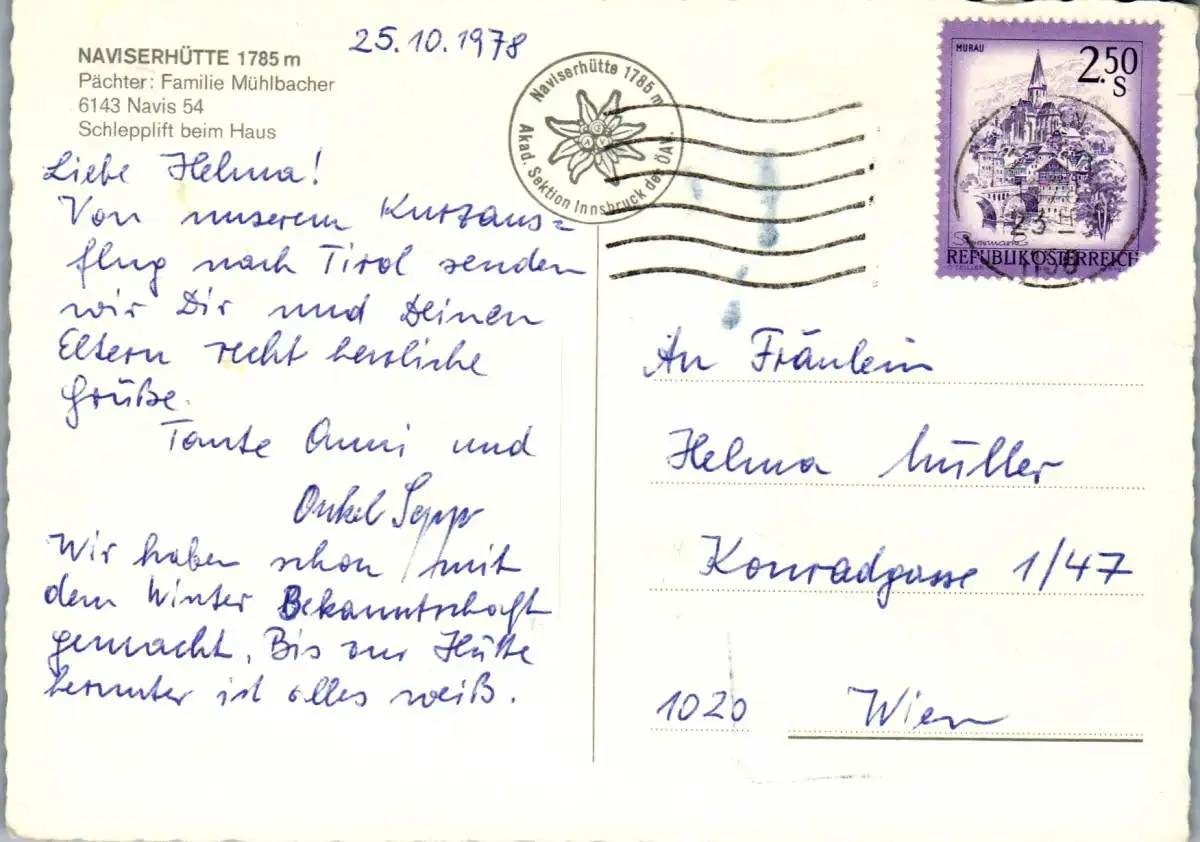 NAVISERHÜTTE 1785 m
Pächter: Familie Mühlbacher
6143 Navis 54
Schlepplift beim Haus
25.10.1978
Naviserhütte 1785 m
Akad. Sektion Innsbruck der ÖAV.
MURAU
2.50
S
Steiermark
REPUBLIK ÖSTERREICH
Liebe Helma!
Von unserem Kurzaus=
flug nach Tirol senden
wir Dir und Deinen
Eltern recht herzliche
Grüße.
Tante Anni und
Onkel Sepp
Wir haben schon mit
dem Winter Bekanntschaft
gemacht. Bis zur Hütte
herunter ist alles weiß.
An Fräulein
Helma Müller
Konradgasse 1/47
1020 Wien